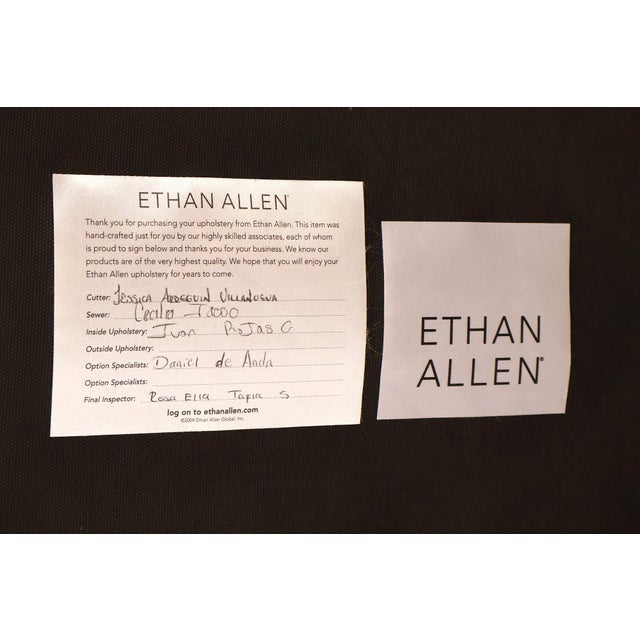 ETHAN ALLEN®
Thank you for purchasing your upholstery from Ethan Allen. This item was
hand-crafted just for you by our highly skilled associates, each of whom
is proud to sign below and thanks you for your business. We know our
products are of the very highest quality. We hope that you will enjoy your
Ethan Allen upholstery for years to come.
Cutter: Jessica Arreguin Villanueva
Sewer:
Inside Upholstery: Juan Rojas G
Outside Upholstery:
Option Specialists: Daniel de Anda
Option Specialists:
Final Inspector: Rosa Elia Tapia S
log on to ethanallen.com
©2009 Ethan Allen Global, Inc.
ETHAN
ALLEN®